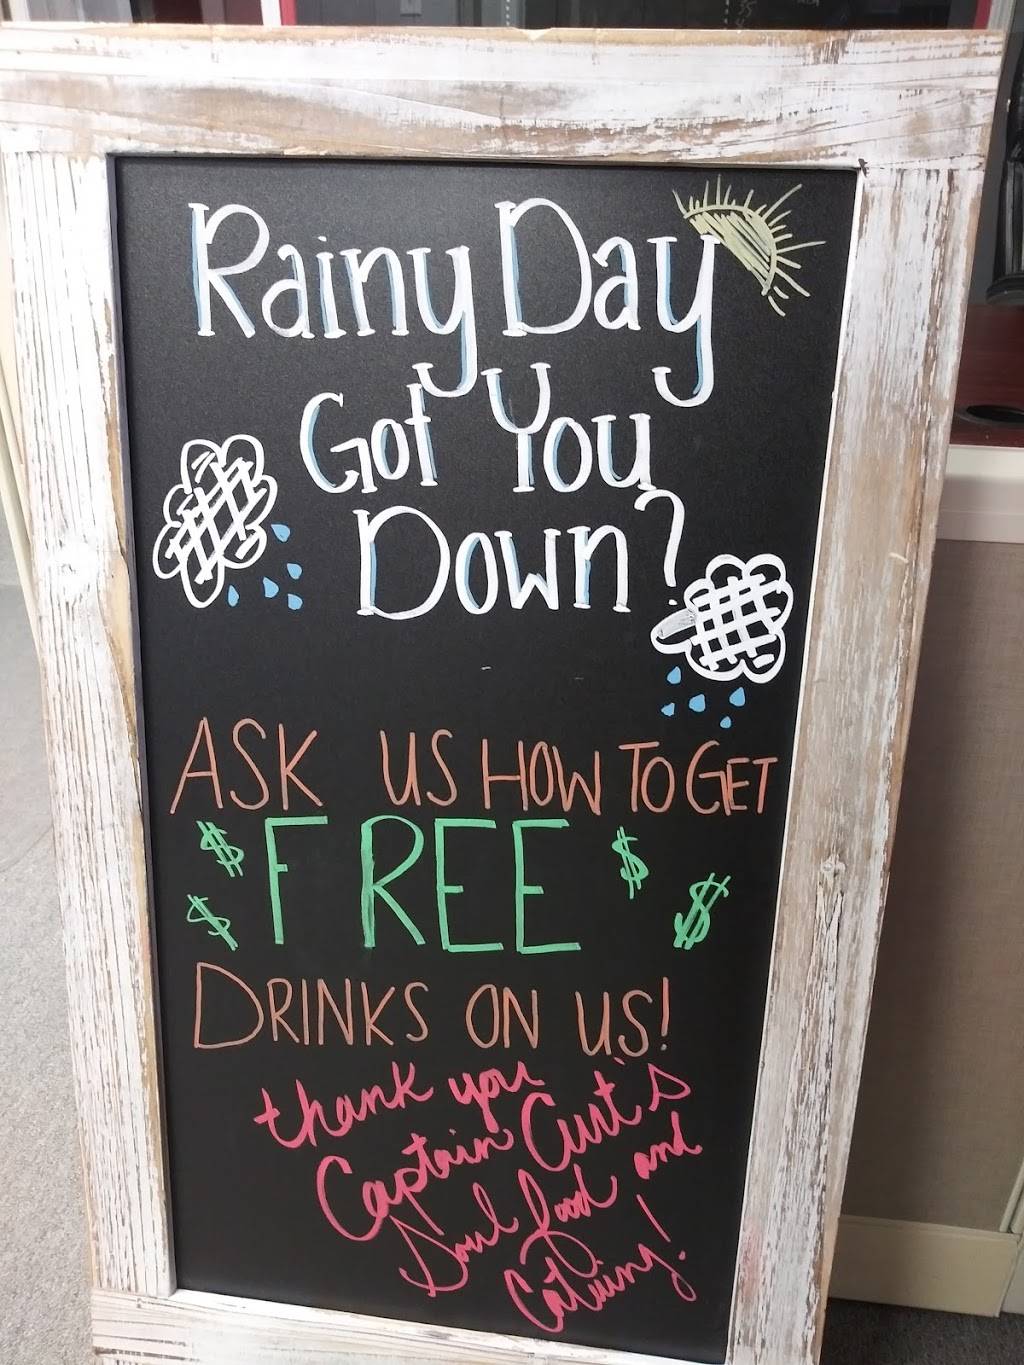 Rainy Day
Got You
Down?
ASK US HOW TO GET
$ FREE $
$ $
DRINKS ON US!
thank you
Captain Curt's
Soul food and
Catering!